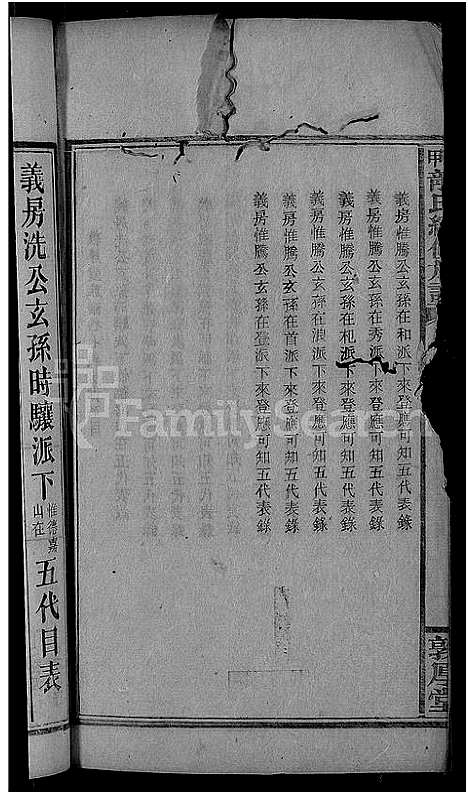 義房惟騰公玄孫在和派下來登應可知五代表錄
義房惟騰公玄孫在秀派下來登應可知五代表錄
義房惟騰公玄孫在杞派下來登應可知五代表錄
義房惟騰公玄孫在浪派下來登應可知五代表錄
義房惟騰公玄孫在首派下來登應可知五代表錄
義房惟騰公玄孫在登派下來登應可知五代表錄
敦厚堂
義房洗公玄孫時驤派下惟德嘉山在五代目表
FamilySearch